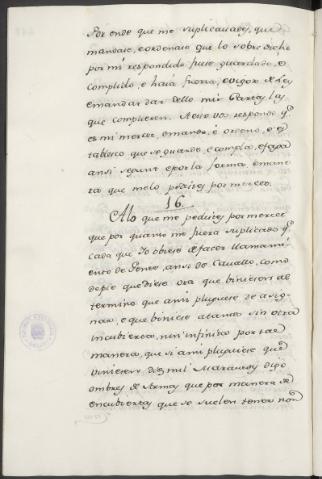 Por ende que me suplicavades, que
mandase, e ordenase que lo sobre dicho
por mi respondido fuese guardado, e
complido, e haia fuerza, e vigor de Ley
e mandar dar dello mis Cartas las
que complieren. A esto vos respondo q.e
es mi merced, e mando, é ordeno, e es
tablesco que se guarde e compla, e faga
ansi segunt e por la forma, e mane
ra que me lo pedistes por merced.
16.
A lo que me pedistes por merced
que por quanto me fuera suplicado q.e
cada que Yo obiese de facer llamami
ento de Gente, ansi de Cavallo, como
de pie que diese ora que biniesen al
termino que a mi pluguiese de asig
nar, e que biniese alarde sin otra
encubierta, nin infinta por tal
manera, que si a mi pluguiese que
viniesen diez mil
ombres de Armas que por manera de
encubiertas que se suelen tener non